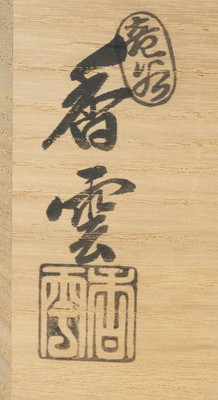 香雲
香雲